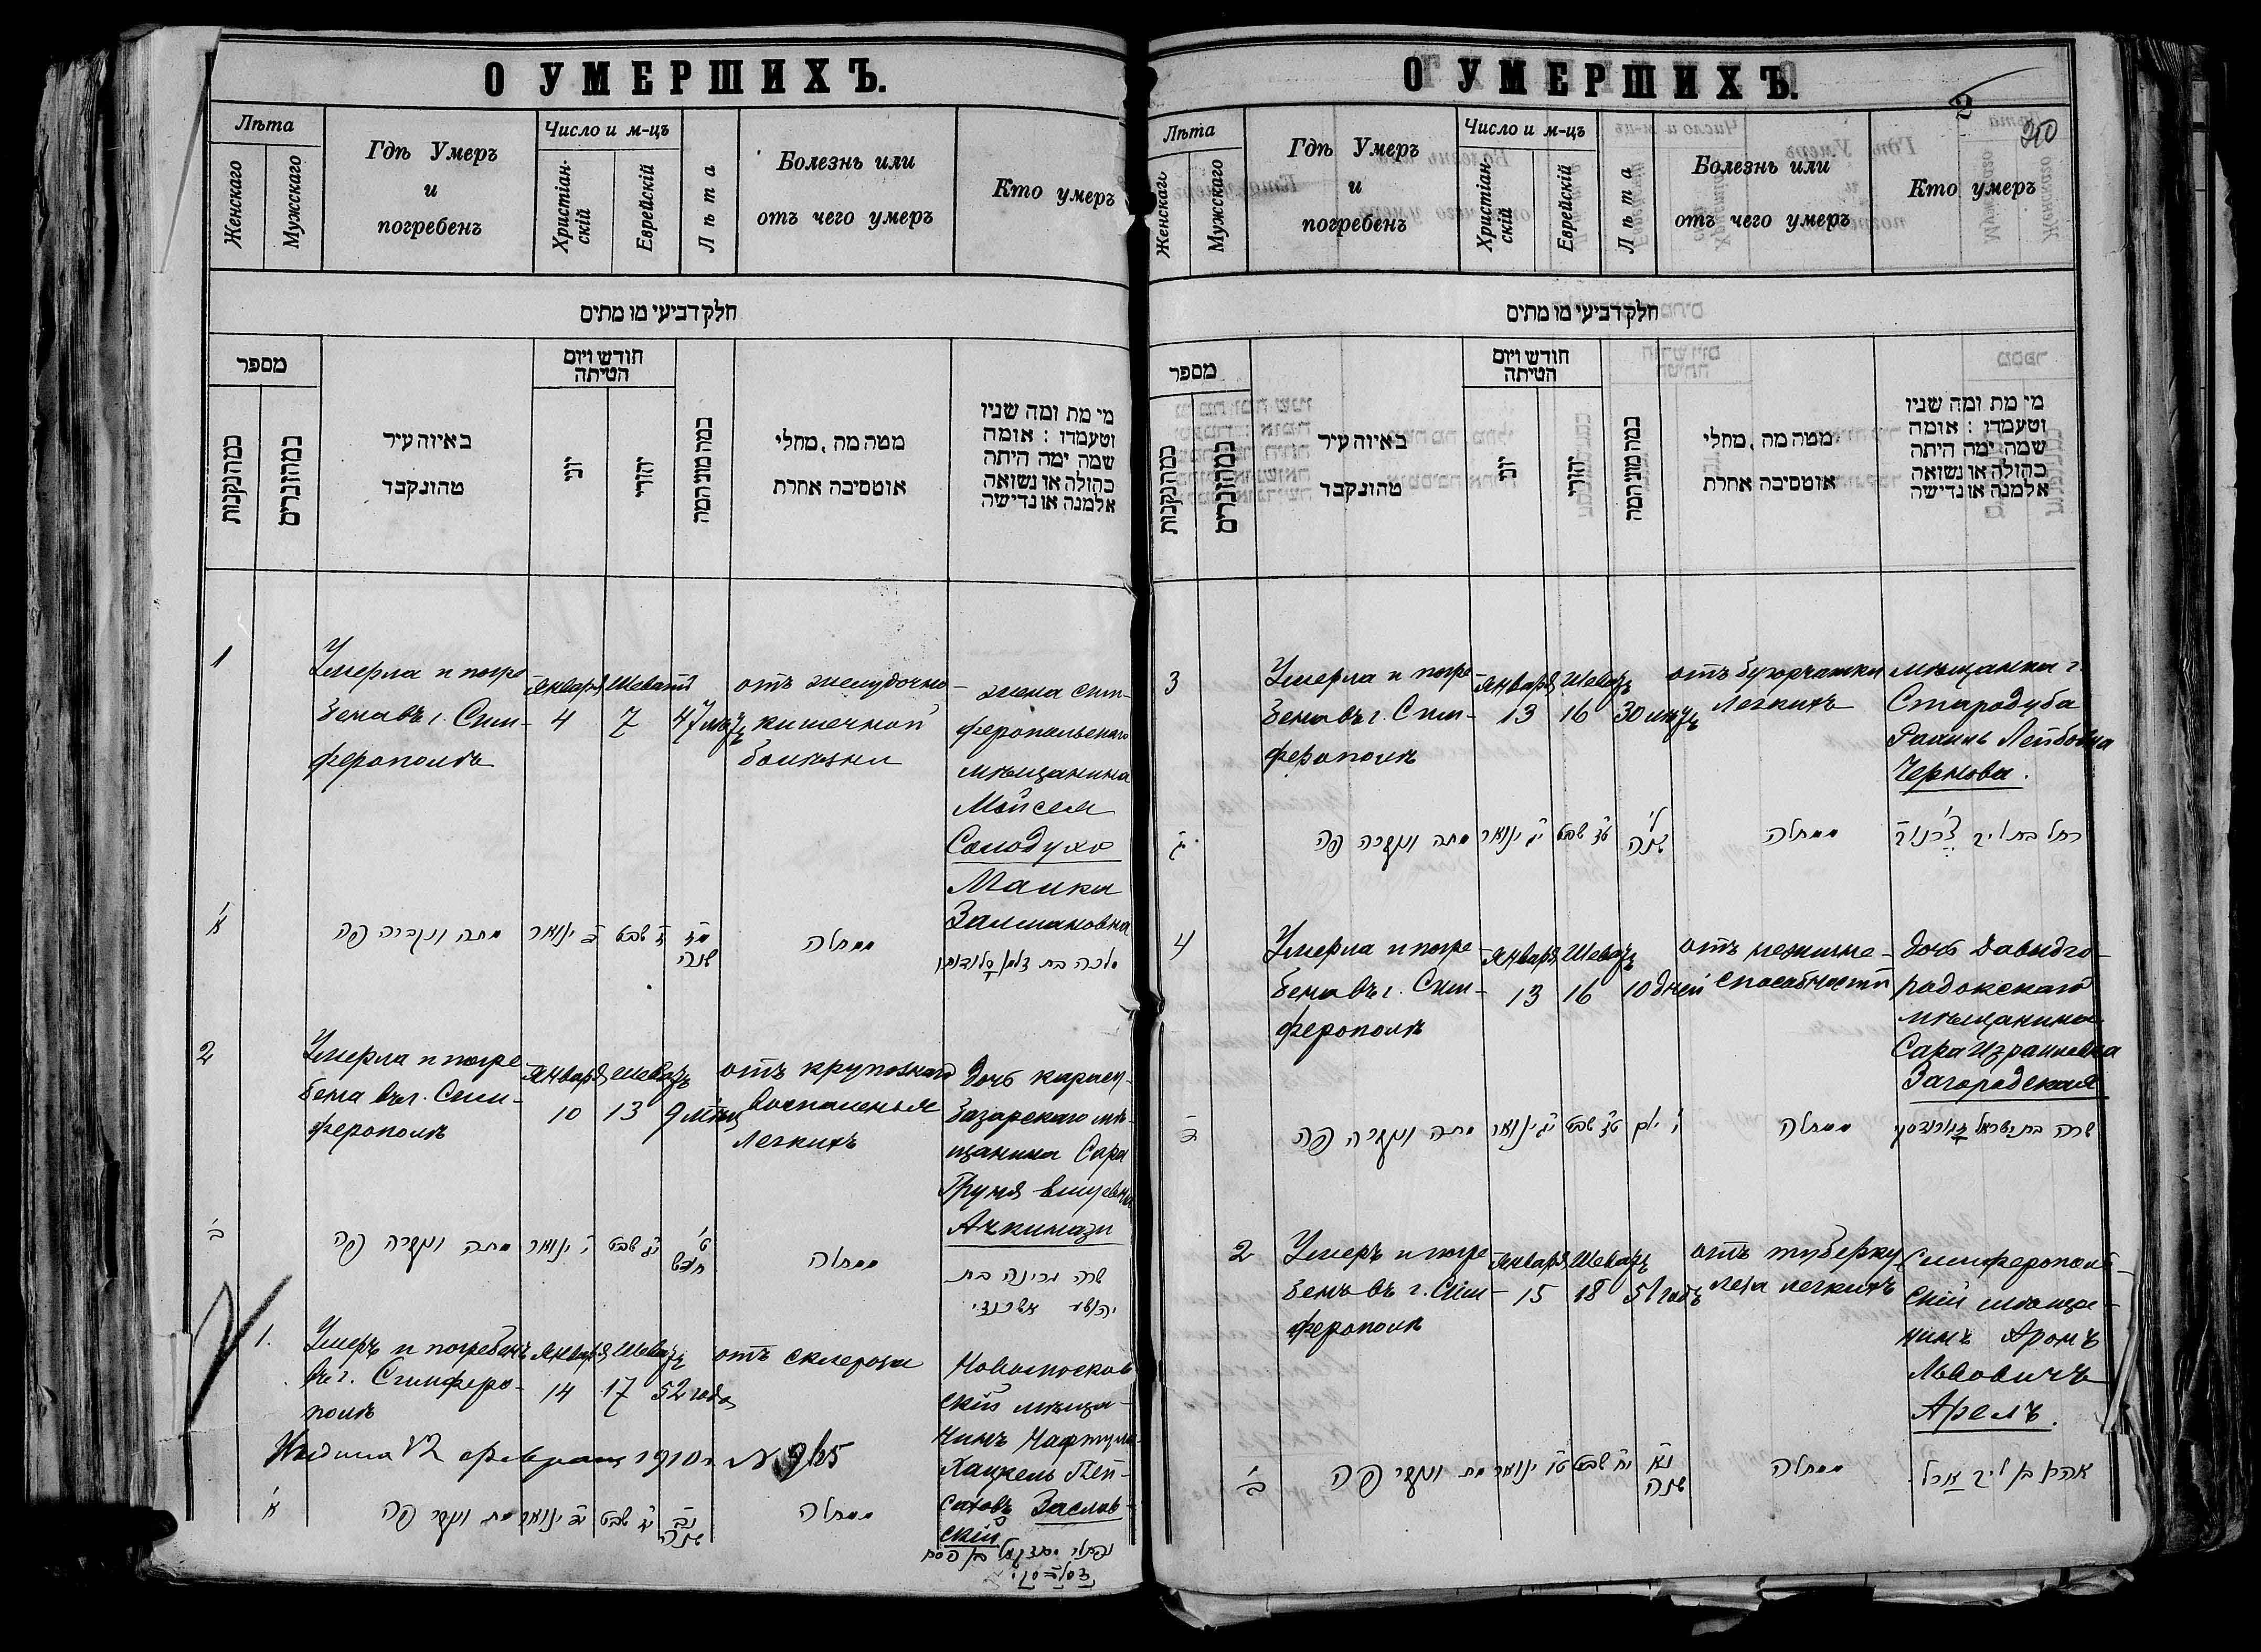 О УМЕРШИХЪ.
Лѣта
Женскаго
Мужскаго
Гдѣ Умеръ
и
погребенъ
Число и м-цъ
Христіан-
скій
Еврейскій
Лѣта
Болезнь или
отъ чего умеръ
Кто умеръ
חלק דביעי מו מתים
מספר
במה נקבות
במה זכרים
באיזה עיר
טהונקבד
חודש ויום
הטיתה
יוני
יהודי
מטה מה, מחלי
אוטסיבה אחרת
מי מת ומה שניו
וטעמדו : אומה
שמה ימה היתה
כהולה או נשואה
אלמנה או נדישה
1
Умерла и погре
бена въ г. Сим-
ферополѣ
Январѣ
4
Шеватъ
7
47 лѣтъ
отъ желудочно-
кишечной
болѣзни
жена сим-
феропольскаго
мѣщанина
Мойсея
Солодухо
Малки
Залмановна
א
מתה ונקברה פה
ד ינואר
ז שבט
מז
שנה
ממחלה
מלכה בת זלמן סולודוחו
2
Умерла и погре
бена въ г. Сим-
ферополѣ
Январѣ
10
Шеватъ
13
9 мѣсяц
отъ крупознаго
воспаленія
легкихъ
дочь карасу-
базарскаго мѣ-
щанина Сара
Груня
Ачкинази
ב
מתה ונקברה פה
י ינואר
יג שבט
ט
חדש
ממחלה
שרה גרינה בת
יהושע אשכנזי
1.
Умеръ и погребенъ
въ г. Симферо-
полѣ
Январѣ
14
Шеватъ
17
52 года
отъ склероза
Новомосков
скій мѣща-
нинъ Нафтула
Пей-
саховъ Заслав-
скій
12 февраля 1910 г. №
א
מת ונקבר פה
יד ינואר
יז שבט
נב
שנה
ממחלה
נפתלי יחזקאל בן פסח
זסלבסקי
О УМЕРШИХЪ.
2
250
Лѣта
Женскаго
Мужскаго
Гдѣ Умеръ
и
погребенъ
Число и м-цъ
Христіан-
скій
Еврейскій
Лѣта
Болезнь или
отъ чего умеръ
Кто умеръ
חלק דביעי מו מתים
מספר
במה נקבות
במה זכרים
באיזה עיר
טהונקבד
חודש ויום
הטיתה
יוני
יהודי
מטה מה, מחלי
אוטסיבה אחרת
מי מת ומה שניו
וטעמדו : אומה
שמה ימה היתה
כהולה או נשואה
אלמנה או נדישה
3
Умерла и погре
бена въ г. Сим-
ферополѣ
Январѣ
13
Шеватъ
16
30 лѣтъ
отъ бугорчатки
легкихъ
мѣщанка г.
Стародуба
Рахиль Лейбовна
Чернова.
ג
מתה ונקברה פה
יג ינואר
טז שבט
ל
שנה
ממחלה
רחל בת ליב
4
Умерла и погре-
бена въ г. Сим-
ферополѣ
Январѣ
13
Шеватъ
16
10 дней
отъ нежизне-
способности
дочь Давидго-
родокскаго
мѣщанина
Сара Израилевна
Загородская
ד
מתה ונקברה פה
יג ינואר
טז שבט
י ימים
ממחלה
שרה בת ישראל זגורודסקי
2
Умеръ и погре
бенъ въ г. Сим-
ферополѣ
Январѣ
15
Шеватъ
18
51 годъ
отъ туберку
леза легкихъ
Симферополь-
скій мѣща-
нинъ Аронъ
Львовичъ
Арелъ.
ב
מת ונקבר פה
טו ינואר
יח שבט
נא
שנה
ממחלה
אהרן בן ליב אראל.